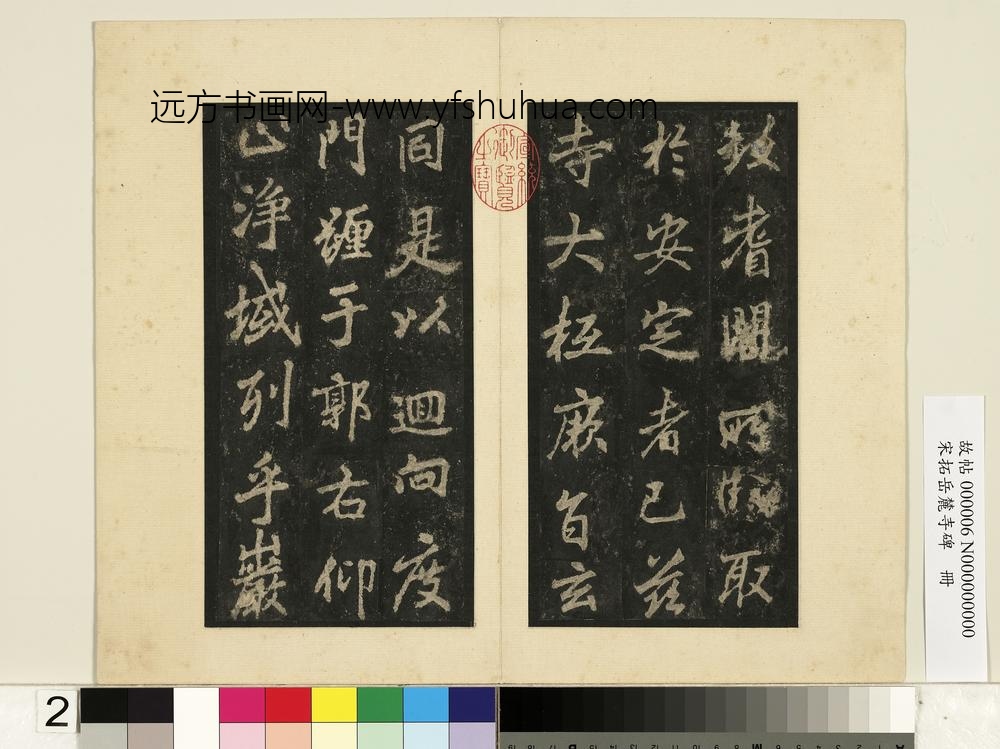 远方书画网-www.yfshuhua.com
故耆闍所臨取
於安定者已茲
寺大抵厥旨玄
同是以迴向度
門躔于郭右仰
止淨域列乎巖
宣統
御覽
之寶
故帖 000006 N000000000
宋拓岳麓寺碑 冊
2